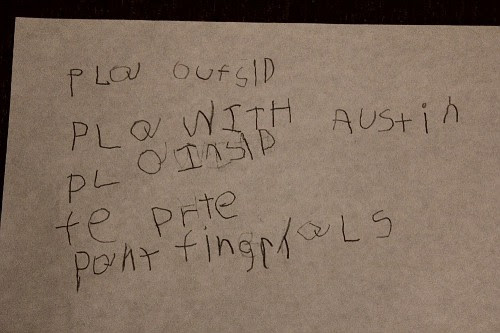 PLa OUtSID
PLa WITH AUStin
PL a InSID
te PRte
PaNt fingrnaLS